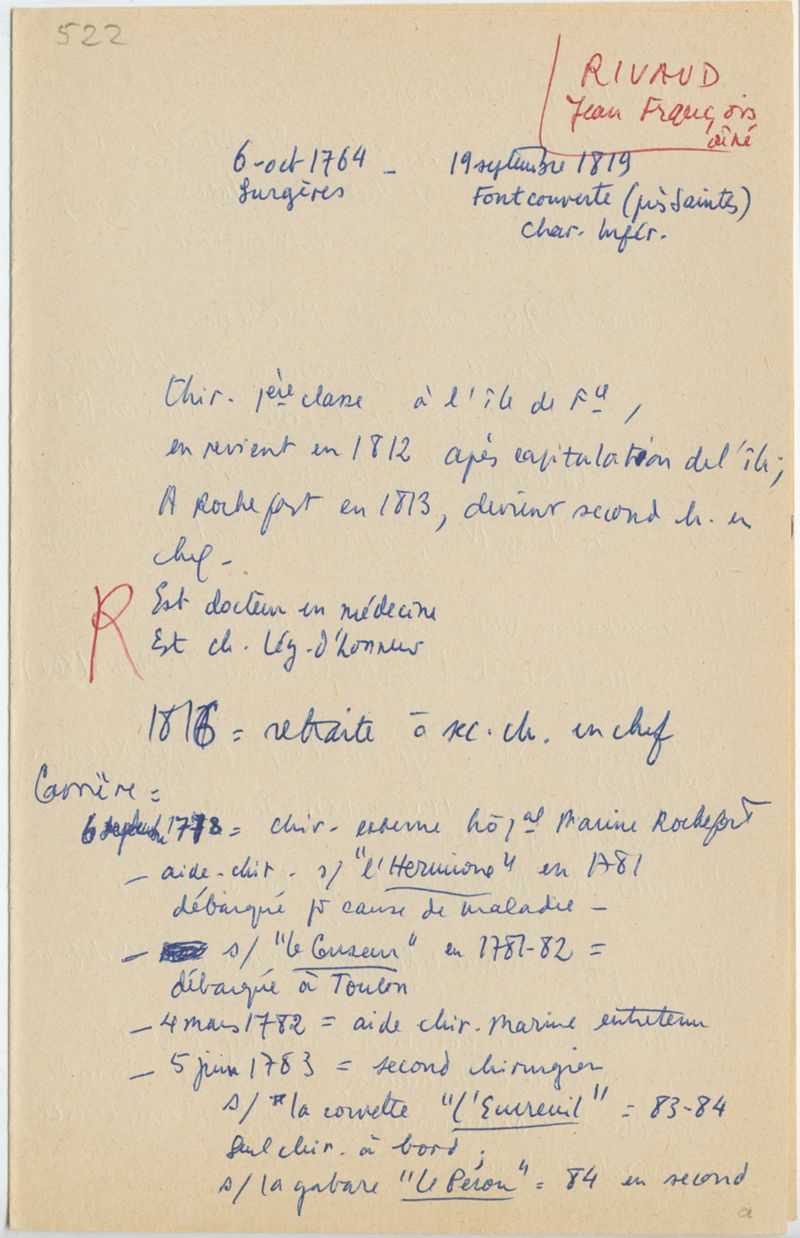 522
RIVAUD
Jean François
aîné
6 oct 1764 - 19 septembre 1819
Surgères Fontcouverte (près Saintes)
Char. Infér.
Chir. 1ère classe à l'île de Fce,
en revient en 1812 après capitulation de l'île;
A Rochefort en 1813, devient second ch. en
chef -
R
Est docteur en médecine
Est ch. Lég. d'honneur
1816 = retraite à sec. ch. en chef
Carrière =
6 septembre 1778 = chir. externe hôpal Marine Rochefort
- aide-chir. s/ "l'Hermione" en 1781
débarqué pr cause de maladie -
- s/ "le Censeur" en 1781-82 =
débarqué à Toulon
- 4 mars 1782 = aide chir. Marine entretenu
- 5 juin 1783 = second chirurgien
s/ la corvette "l'Ecureuil" = 83-84
seul chir. à bord;
s/ la gabare "le Péron" = 84 en second
a